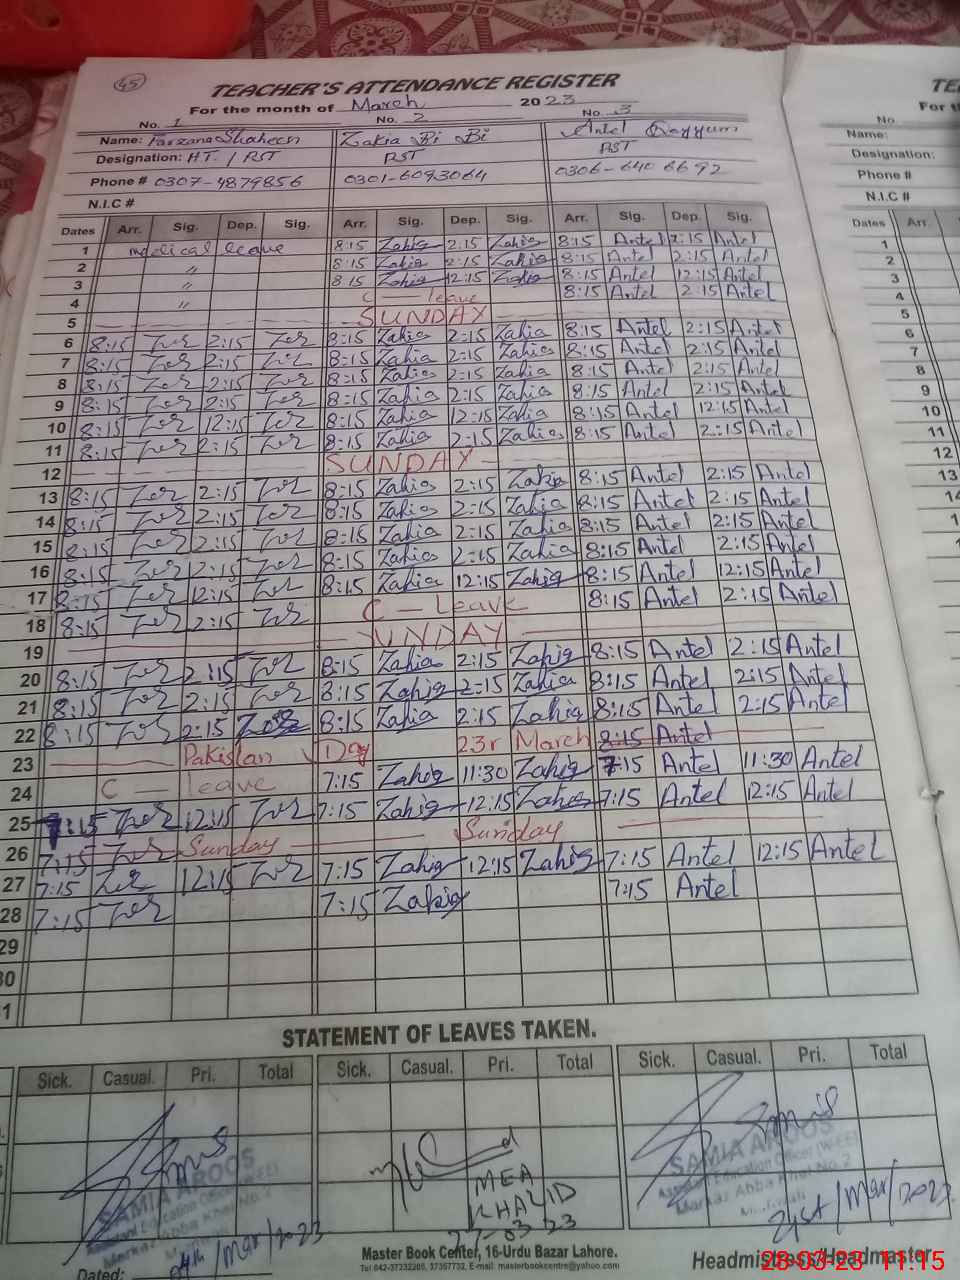 45
TEACHER'S ATTENDANCE REGISTER
For the month of March 2023
No. 1 No. 2 No. 3
Name: Farzana Shaheen Zakia Bi Bi Antel Qayyum
Designation: HT. / PST PST PST
Phone # 0307-4879856 0301-6093064 0306-640 6692
N.I.C #
Dates Arr. Sig. Dep. Sig. Arr. Sig. Dep. Sig. Arr. Sig. Dep. Sig.
1 medical leave 8:15 Zakia 2:15 Zakia 8:15 Antel 2:15 Antel
2 " 8:15 Zakia 2:15 Zakia 8:15 Antel 2:15 Antel
3 " 8:15 Zakia 12:15 Zakia 8:15 Antel 12:15 Antel
4 " C — leave 8:15 Antel 2:15 Antel
5 SUNDAY
6 8:15 2:15 8:15 Zakia 2:15 Zakia 8:15 Antel 2:15 Antel
7 8:15 2:15 8:15 Zakia 2:15 Zakia 8:15 Antel 2:15 Antel
8 8:15 2:15 8:15 Zakia 2:15 Zakia 8:15 Antel 2:15 Antel
9 8:15 2:15 8:15 Zakia 2:15 Zakia 8:15 Antel 2:15 Antel
10 8:15 12:15 8:15 Zakia 12:15 Zakia 8:15 Antel 12:15 Antel
11 8:15 2:15 8:15 Zakia 2:15 Zakia 8:15 Antel 2:15 Antel
12 SUNDAY
13 8:15 2:15 8:15 Zakia 2:15 Zakia 8:15 Antel 2:15 Antel
14 8:15 2:15 8:15 Zakia 2:15 Zakia 8:15 Antel 2:15 Antel
15 8:15 2:15 8:15 Zakia 2:15 Zakia 8:15 Antel 2:15 Antel
16 8:15 2:15 8:15 Zakia 2:15 Zakia 8:15 Antel 2:15 Antel
17 8:15 12:15 8:15 Zakia 12:15 Zakia 8:15 Antel 12:15 Antel
18 8:15 2:15 C — Leave 8:15 Antel 2:15 Antel
19 UNDAY
20 8:15 2:15 8:15 Zakia 2:15 Zakia 8:15 Antel 2:15 Antel
21 8:15 2:15 8:15 Zakia 2:15 Zakia 8:15 Antel 2:15 Antel
22 8:15 2:15 8:15 Zakia 2:15 Zakia 8:15 Antel 2:15 Antel
23 Pakistan Day 23r March 8:15 Antel
24 C — leave 7:15 Zakia 11:30 Zakia 7:15 Antel 11:30 Antel
25 7:15 12:15 7:15 Zakia 12:15 Zakia 7:15 Antel 12:15 Antel
26 7:15 Sunday Sunday
27 7:15 12:15 7:15 Zakia 12:15 Zakia 7:15 Antel 12:15 Antel
28 7:15 7:15 Zakia 7:15 Antel
29
30
31
STATEMENT OF LEAVES TAKEN.
Sick. Casual. Pri. Total Sick. Casual. Pri. Total Sick. Casual. Pri. Total
SAMIA AROOS
Assistant Education Officer (W-EE)
Markaz Abba Khel No. 2
MEA
KHALID
27-03-23
SAMIA AROOS
Assistant Education Officer (W-EE)
Markaz Abba Khel No. 2
Mianwali
21st/Mar/2023
Dated: /Mar/2023
Master Book Center, 16-Urdu Bazar Lahore.
Tel 042-37232265, 37357732, E-mail: masterbookcentre@yahoo.com
Headmistress/Headmaster
28-03-23 11:15
No.
Name:
Designation:
Phone #
N.I.C #
Dates Arr.
1
2
3
4
5
6
7
8
9
10
11
12
13